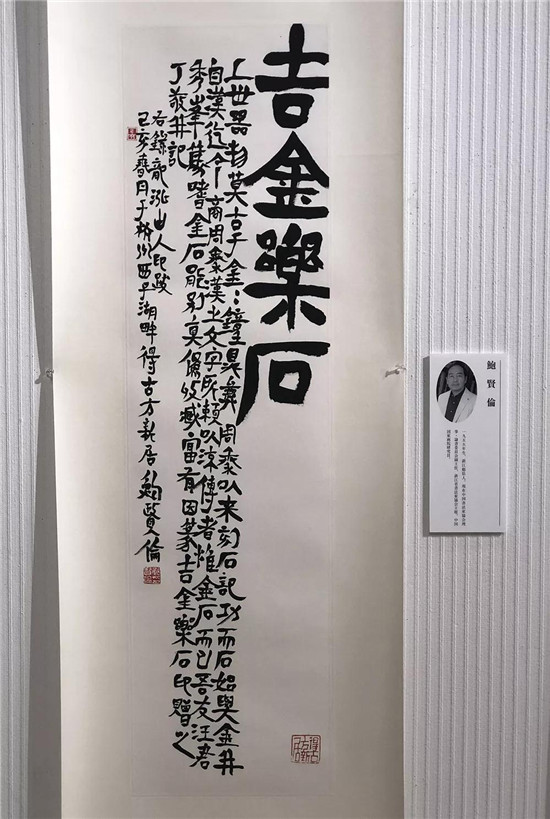 吉金樂石
上世器物莫古于金=鐘鼎彝周秦以來刻石記功而石始與金并
自漢迄今商周秦漢之文字所賴以流傳者惟金石而已吾友汪君
秀峯篤嗜金石能別真偽收藏富有因篆吉金樂石印贈之
丁敬并記
右錄龍泓山人印跋
己亥春月于杭州西子湖畔得古方新居鮑賢倫
鮑賢倫